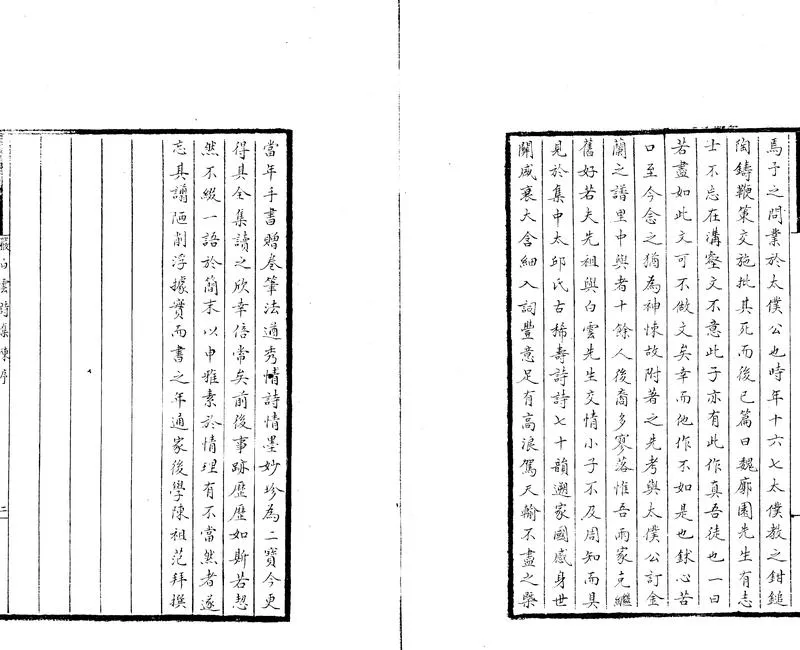 焉子之問業於太僕公也時年十六七太僕教之鉗鎚
陶鑄鞭策交施批其死而後已篇曰魏廓園先生有志
士不忘在溝壑文不意此子亦有此作真吾徒也一曰
若盡如此文可不做文矣幸而他作不如是也鉥心苦
口至今念之猶為神悚故附著之先考與太僕公訂金
蘭之譜里中與者十餘人後裔多寥落惟吾兩家克繼
舊好若夫先祖與白雲先生交情小子不及周知而具
見於集中太邱氏古稀壽詩詩七十韻遡家國感身世
關盛衰大含細入詞豐意足有高浪駕天輸不盡之槩
當年手書贈卷筆法遒秀情詩情墨妙珍為二寶今更
得具全集讀之欣幸倍常矣前後事跡歷歷如斯若恝
然不綴一語於簡末以申雅素於情理有不當然者遂
忘其謭陋削浮據實而書之年通家後學陳祖范拜撰
白雲詩集 陳序
二